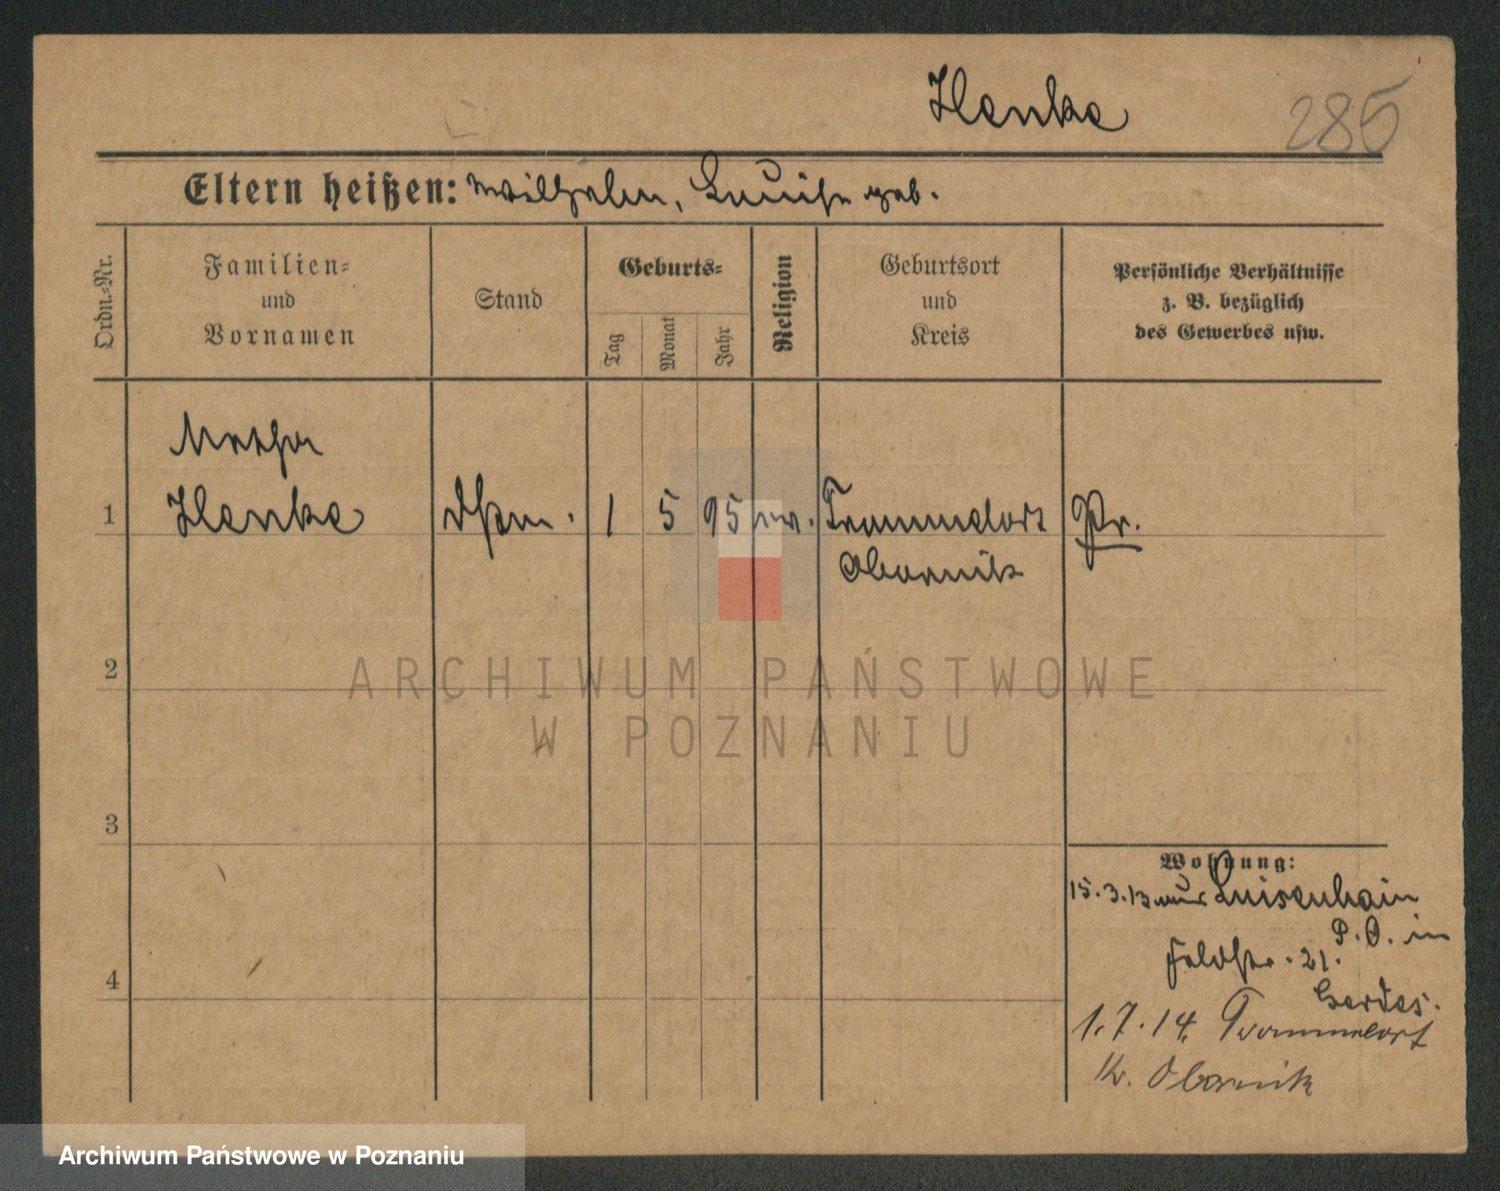 Henke
285
Eltern heißen: Wilhelm, Luise geb.
Ordn.-Nr.
Familien-
und
Vornamen
Stand
Geburts-
Tag
Monat
Jahr
Religion
Geburtsort
und
Kreis
Persönliche Verhältnisse
z. B. bezüglich
des Gewerbes usw.
Martha
1 Henke Dstm. 1 5 95 ev. Trommelort Pr.
Obornik
2
3
4
Wohnung:
15.3.13 Luisenhain
Feldstr. 21. P. O. in
Gerdes.
1.7.14. Trommelort
Kr. Obornik
ARCHIWUM PAŃSTWOWE
W POZNANIU
Archiwum Państwowe w Poznaniu